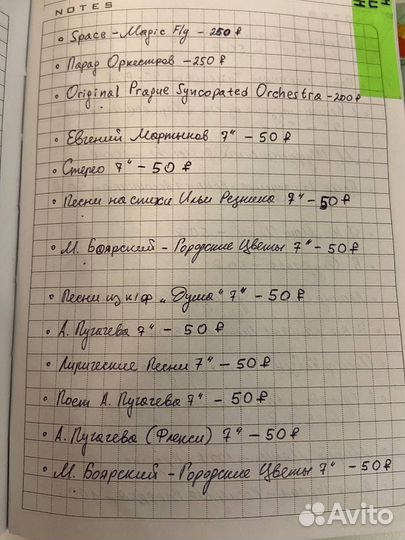 NOTES
• Space - Magic Fly - 250 ₽
• Парад Оркестров - 250 ₽
• Original Prague Syncopated Orchestra - 200 ₽
• Евгений Мартынов 7" - 50 ₽
• Стерео 7" - 50 ₽
• Песни на стихи Ильи Резника 7" - 50 ₽
• М. Боярский - Городские Цветы 7" - 50 ₽
• Песни из к/ф „Душа" 7" - 50 ₽
• А. Пугачева 7" - 50 ₽
• Лирические Песни 7" - 50 ₽
• Поет А. Пугачева 7" - 50 ₽
• А. Пугачева (Флекси) 7" - 50 ₽
• М. Боярский - Городские Цветы 7" - 50 ₽
Avito